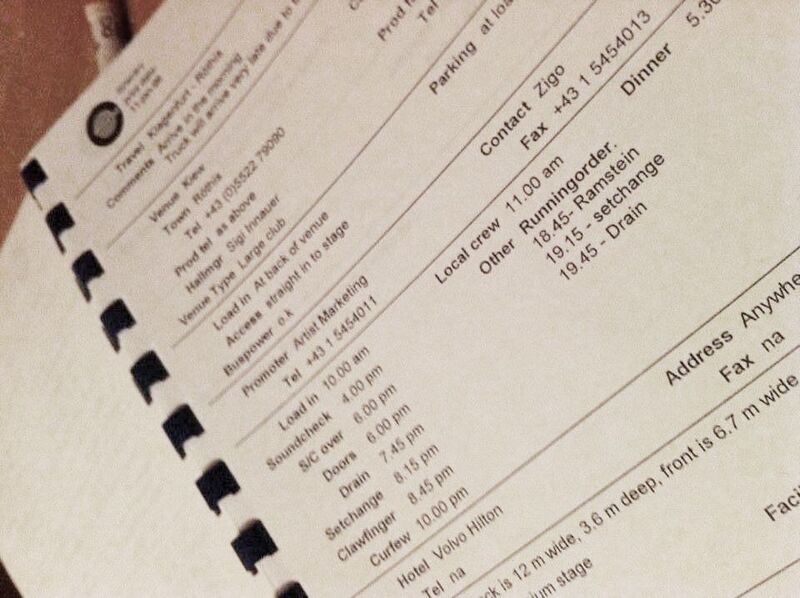 Travel Klagenfurt - Röthis
Comments Arrive in the morning
Truck will arrive very late due to
Venue Kiew
Town Röthis
Tel +43 (0)5522 79090
Prod tel as above
Hallmgr Sigi Innauer
Venue Type Large club
Prod
Tel
Load in At back of venue
Access straight in to stage
Buspower o.k
Parking at
Promoter Artist Marketing
Tel +43 1 5454011
Contact Zigo
Fax +43 1 5454013
Load in 10.00 am
Soundcheck 4.00 pm
S/C over 6.00 pm
Doors 6.00 pm
Drain 7.45 pm
Setchange 8.15 pm
Clawfinger 8.45 pm
Curfew 10.00 pm
Local crew 11.00 am
Other Runningorder.
18.45- Ramstein
19.15 - setchange
19.45 - Drain
Dinner 5.30
Hotel Volvo Hilton
Tel na
Address Anywhe
Fax na
ck is 12 m wide, 3.6 m deep, front is 6.7 m wide
ium stage
Facil